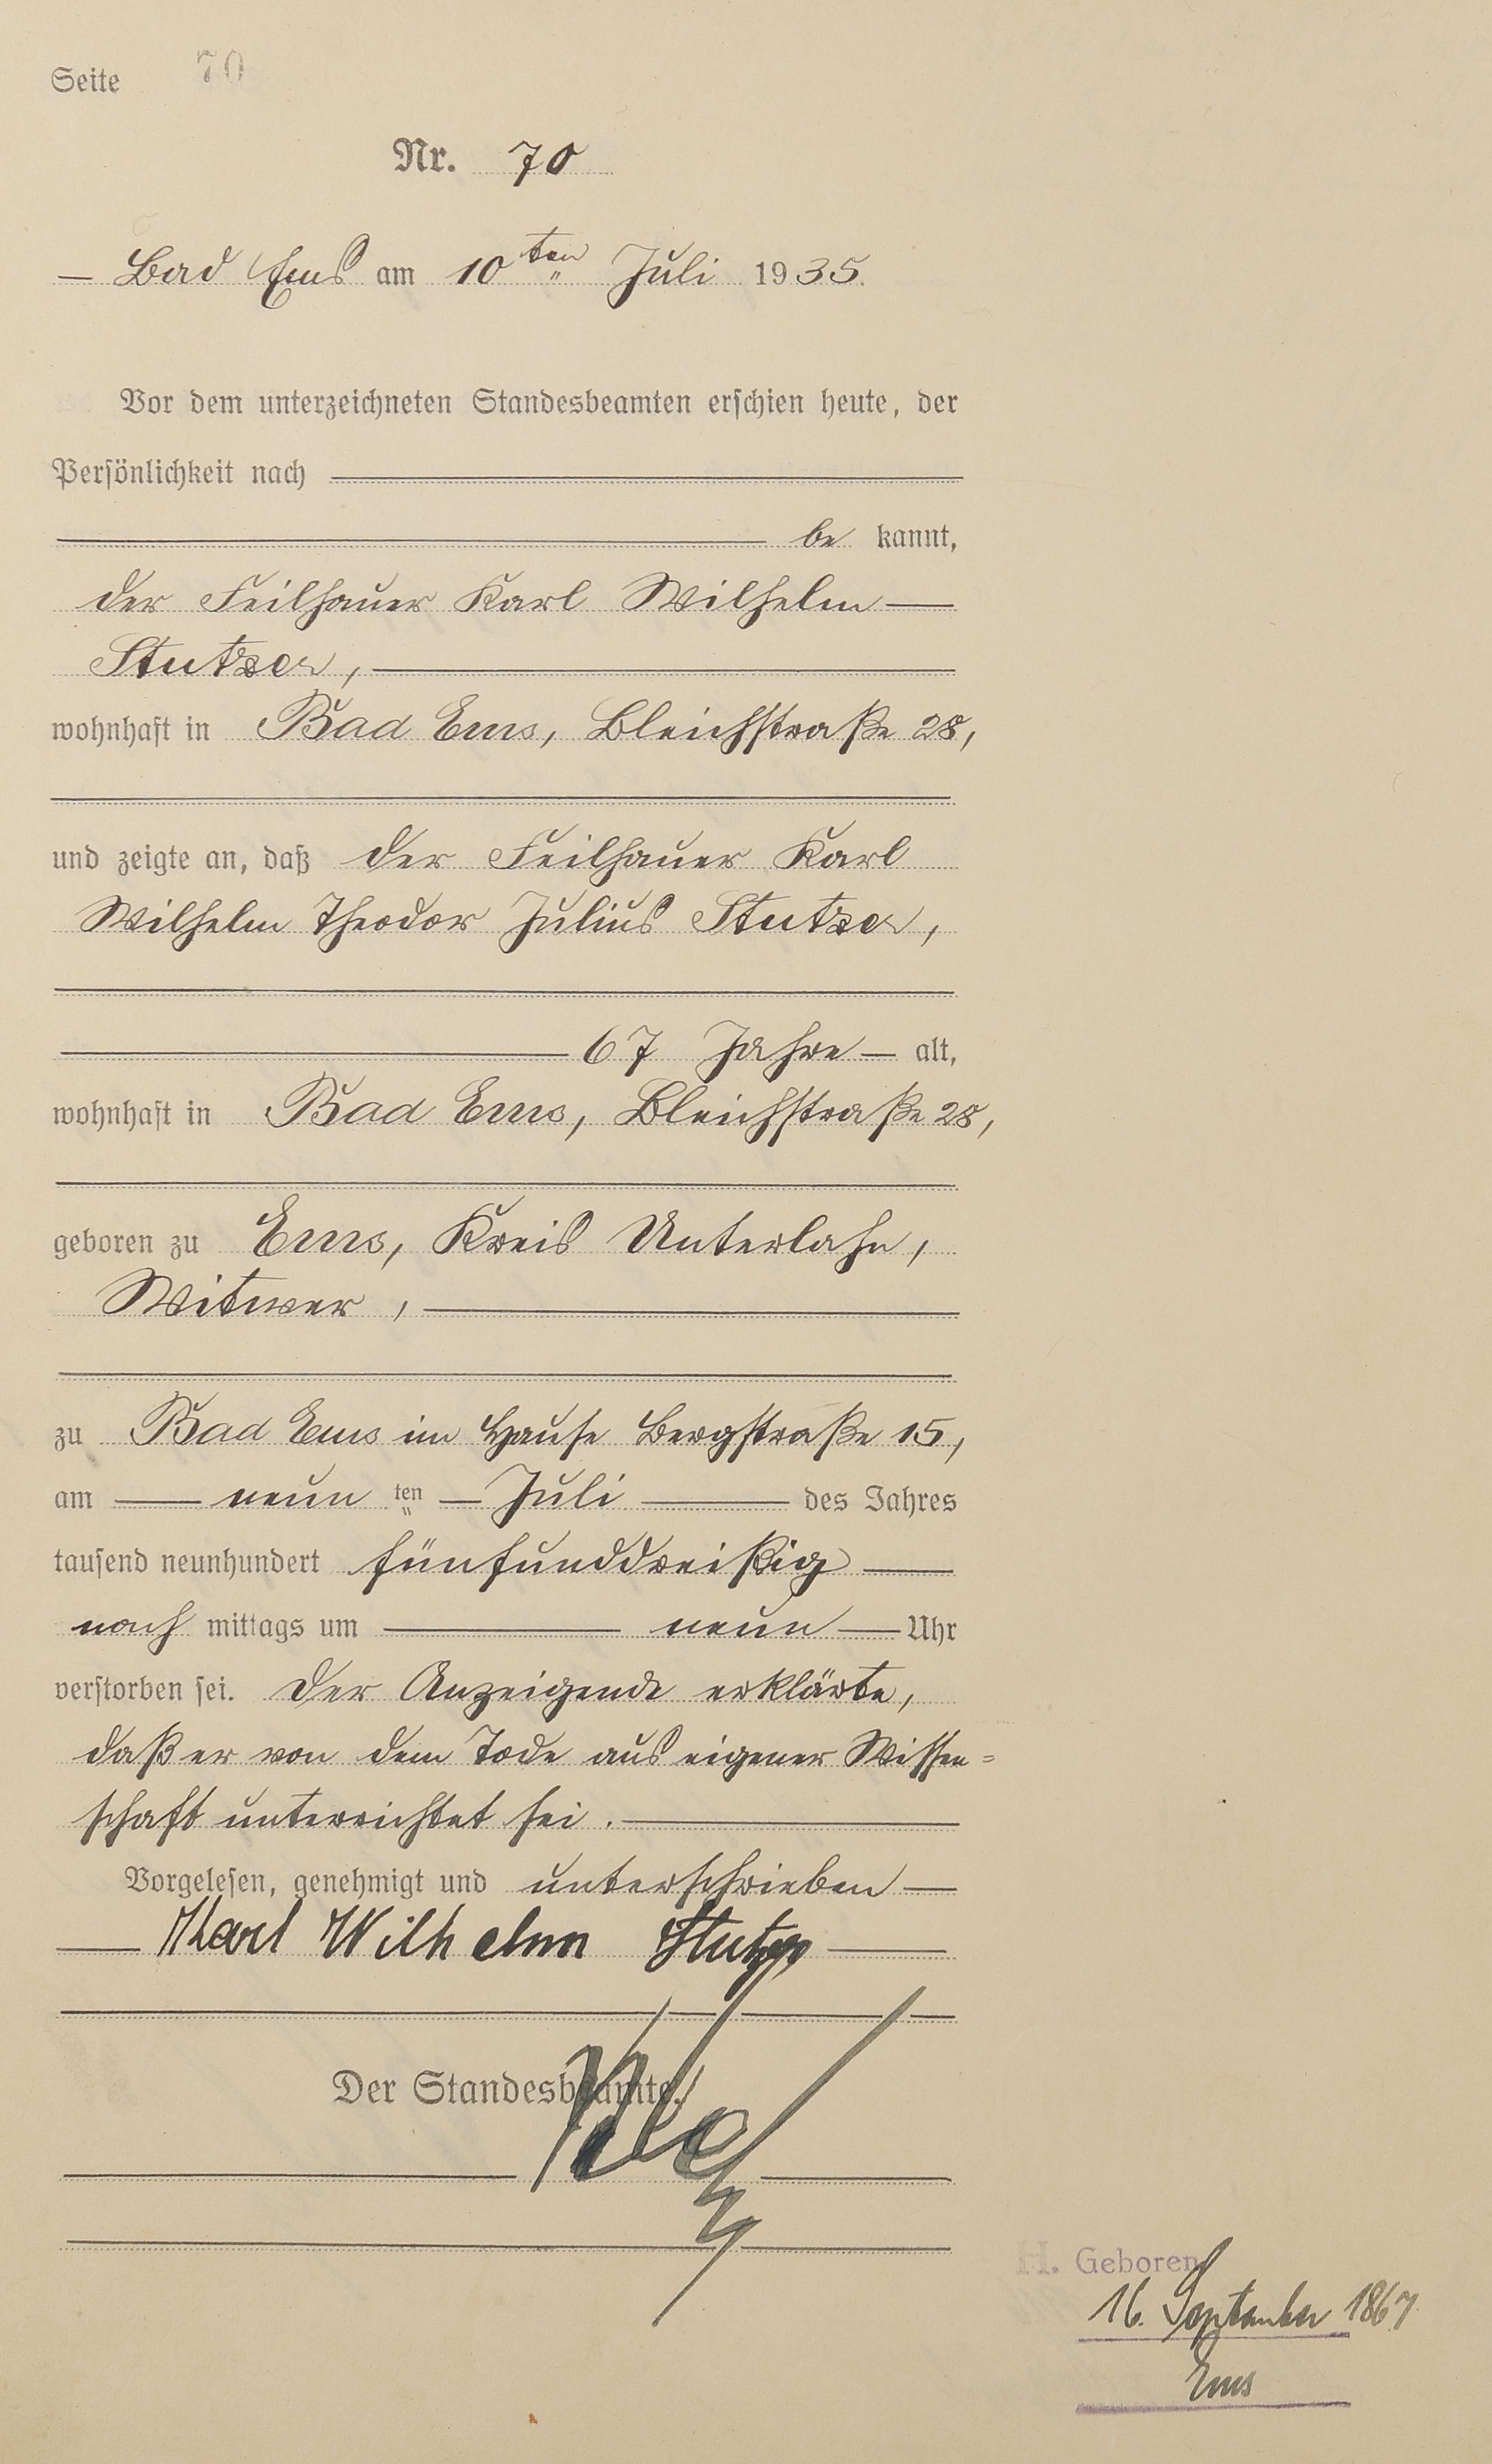 Seite 70
Nr. 70
— Bad Ems am 10ten Juli 1935.
Vor dem unterzeichneten Standesbeamten erschien heute, der
Persönlichkeit nach
be kannt,
der Feilhauer Karl Wilhelm —
Stutzer,
wohnhaft in Bad Ems, Bleichstraße 28,
und zeigte an, daß der Feilhauer Karl
Wilhelm Theodor Julius Stutzer,
67 Jahre — alt,
wohnhaft in Bad Ems, Bleichstraße 28,
geboren zu Ems, Kreis Unterlahn,
Witwer,
zu Bad Ems im Hause Bergstraße 15,
am — neun ten — Juli — des Jahres
tausend neunhundert fünfunddreißig —
nach mittags um — neun — Uhr
verstorben sei. Der Anzeigende erklärte,
daß er von dem Tode aus eigener Wissen=
schaft unterrichtet sei. —
Vorgelesen, genehmigt und unterschrieben —
— Karl Wilhelm Stutzer —
Der Standesbeamte.
H. Geboren
16. September 1867
Ems